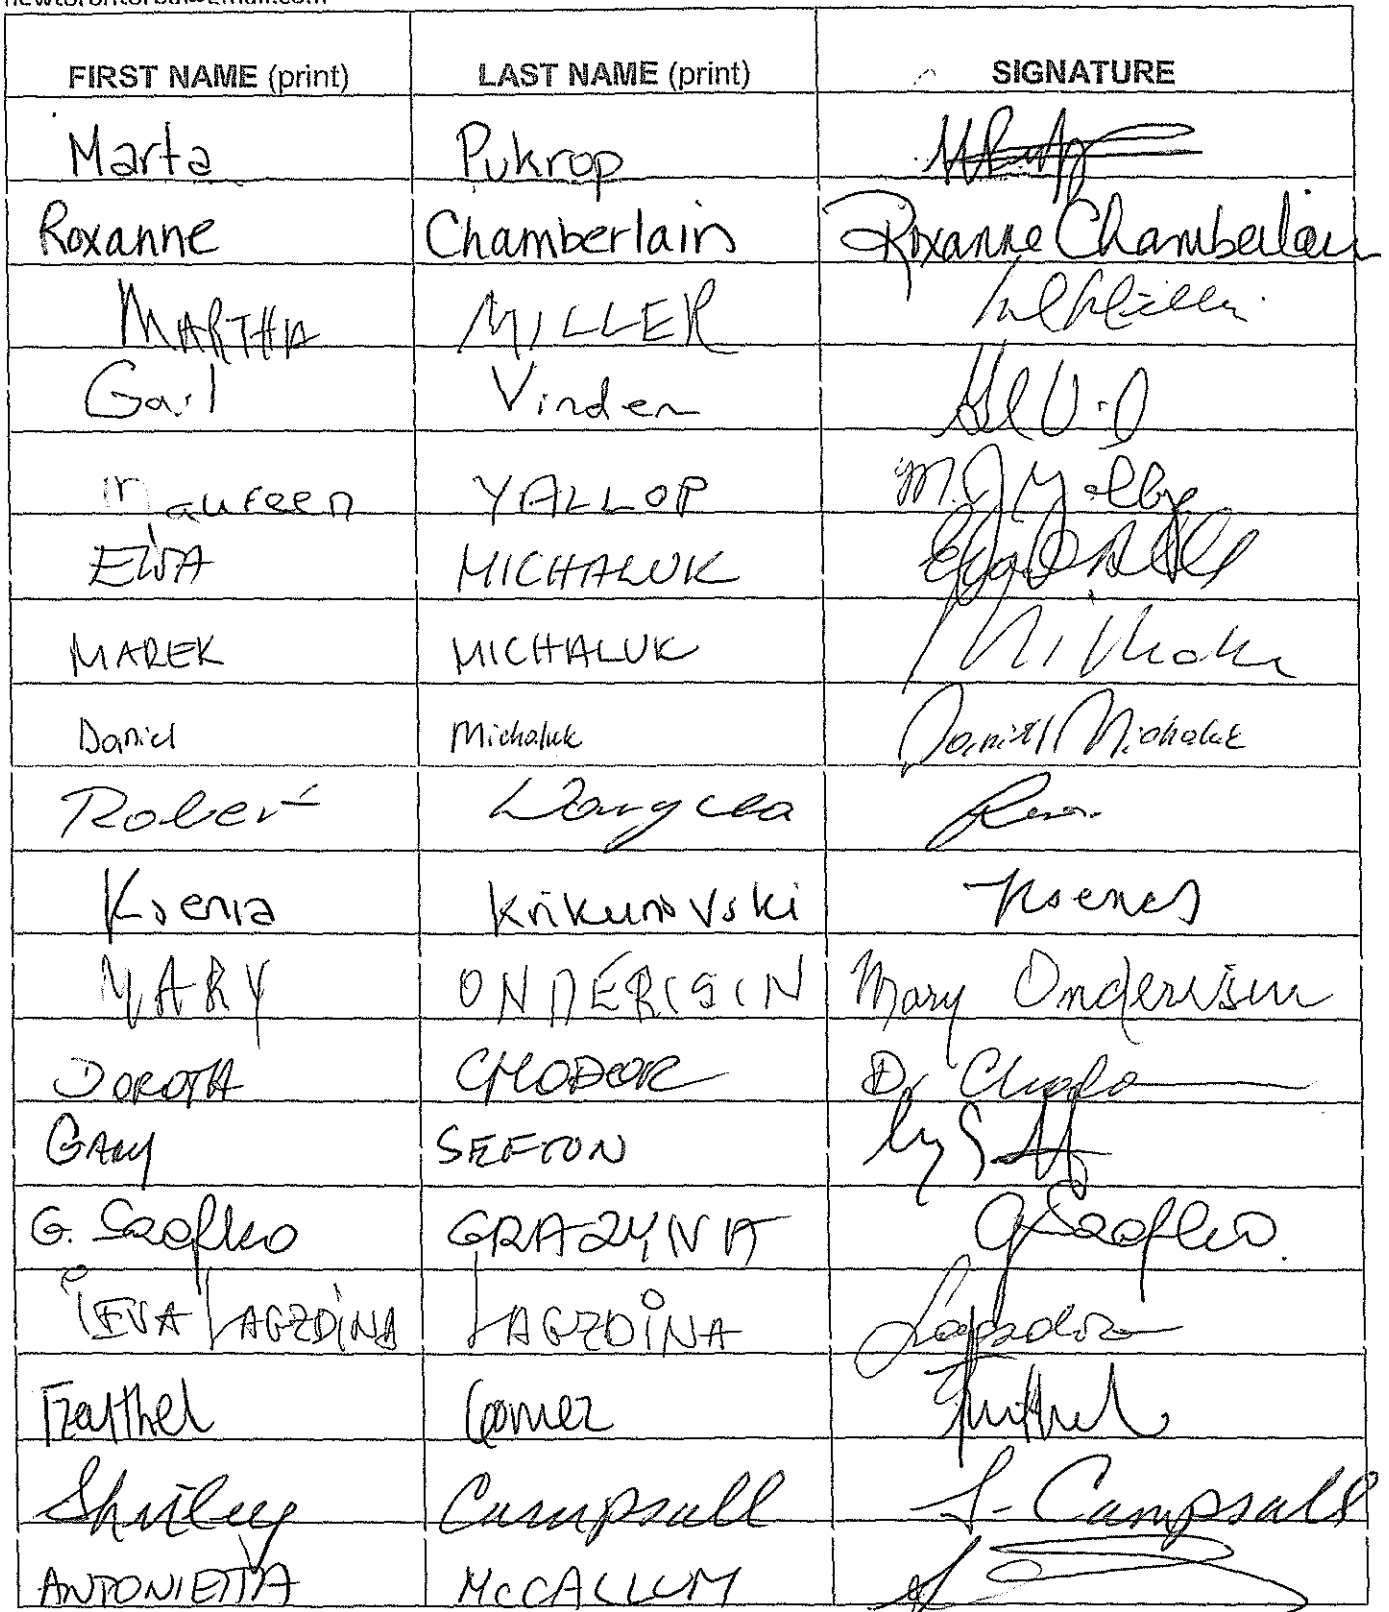 FIRST NAME (print) LAST NAME (print) SIGNATURE
Marta Pukrop
Roxanne Chamberlain Roxanne Chamberlain
MARTHA MILLER
Gail Vinden
Maureen YALLOP
EWA MICHALUK
MAREK MICHALUK
Daniel Michaluk Daniel Michaluk
Robert
Ksenia Krikunovski
MARY ONDERISIN Mary Onderisin
DOROTA CHODOR
GARY SEFTON
G. Szafko GRAZYNA G. Szafko
IEVA LAGZDINA LAGZDINA
Gomez
Shirley Campsall S. Campsall
ANTONIETTA McCALLUM